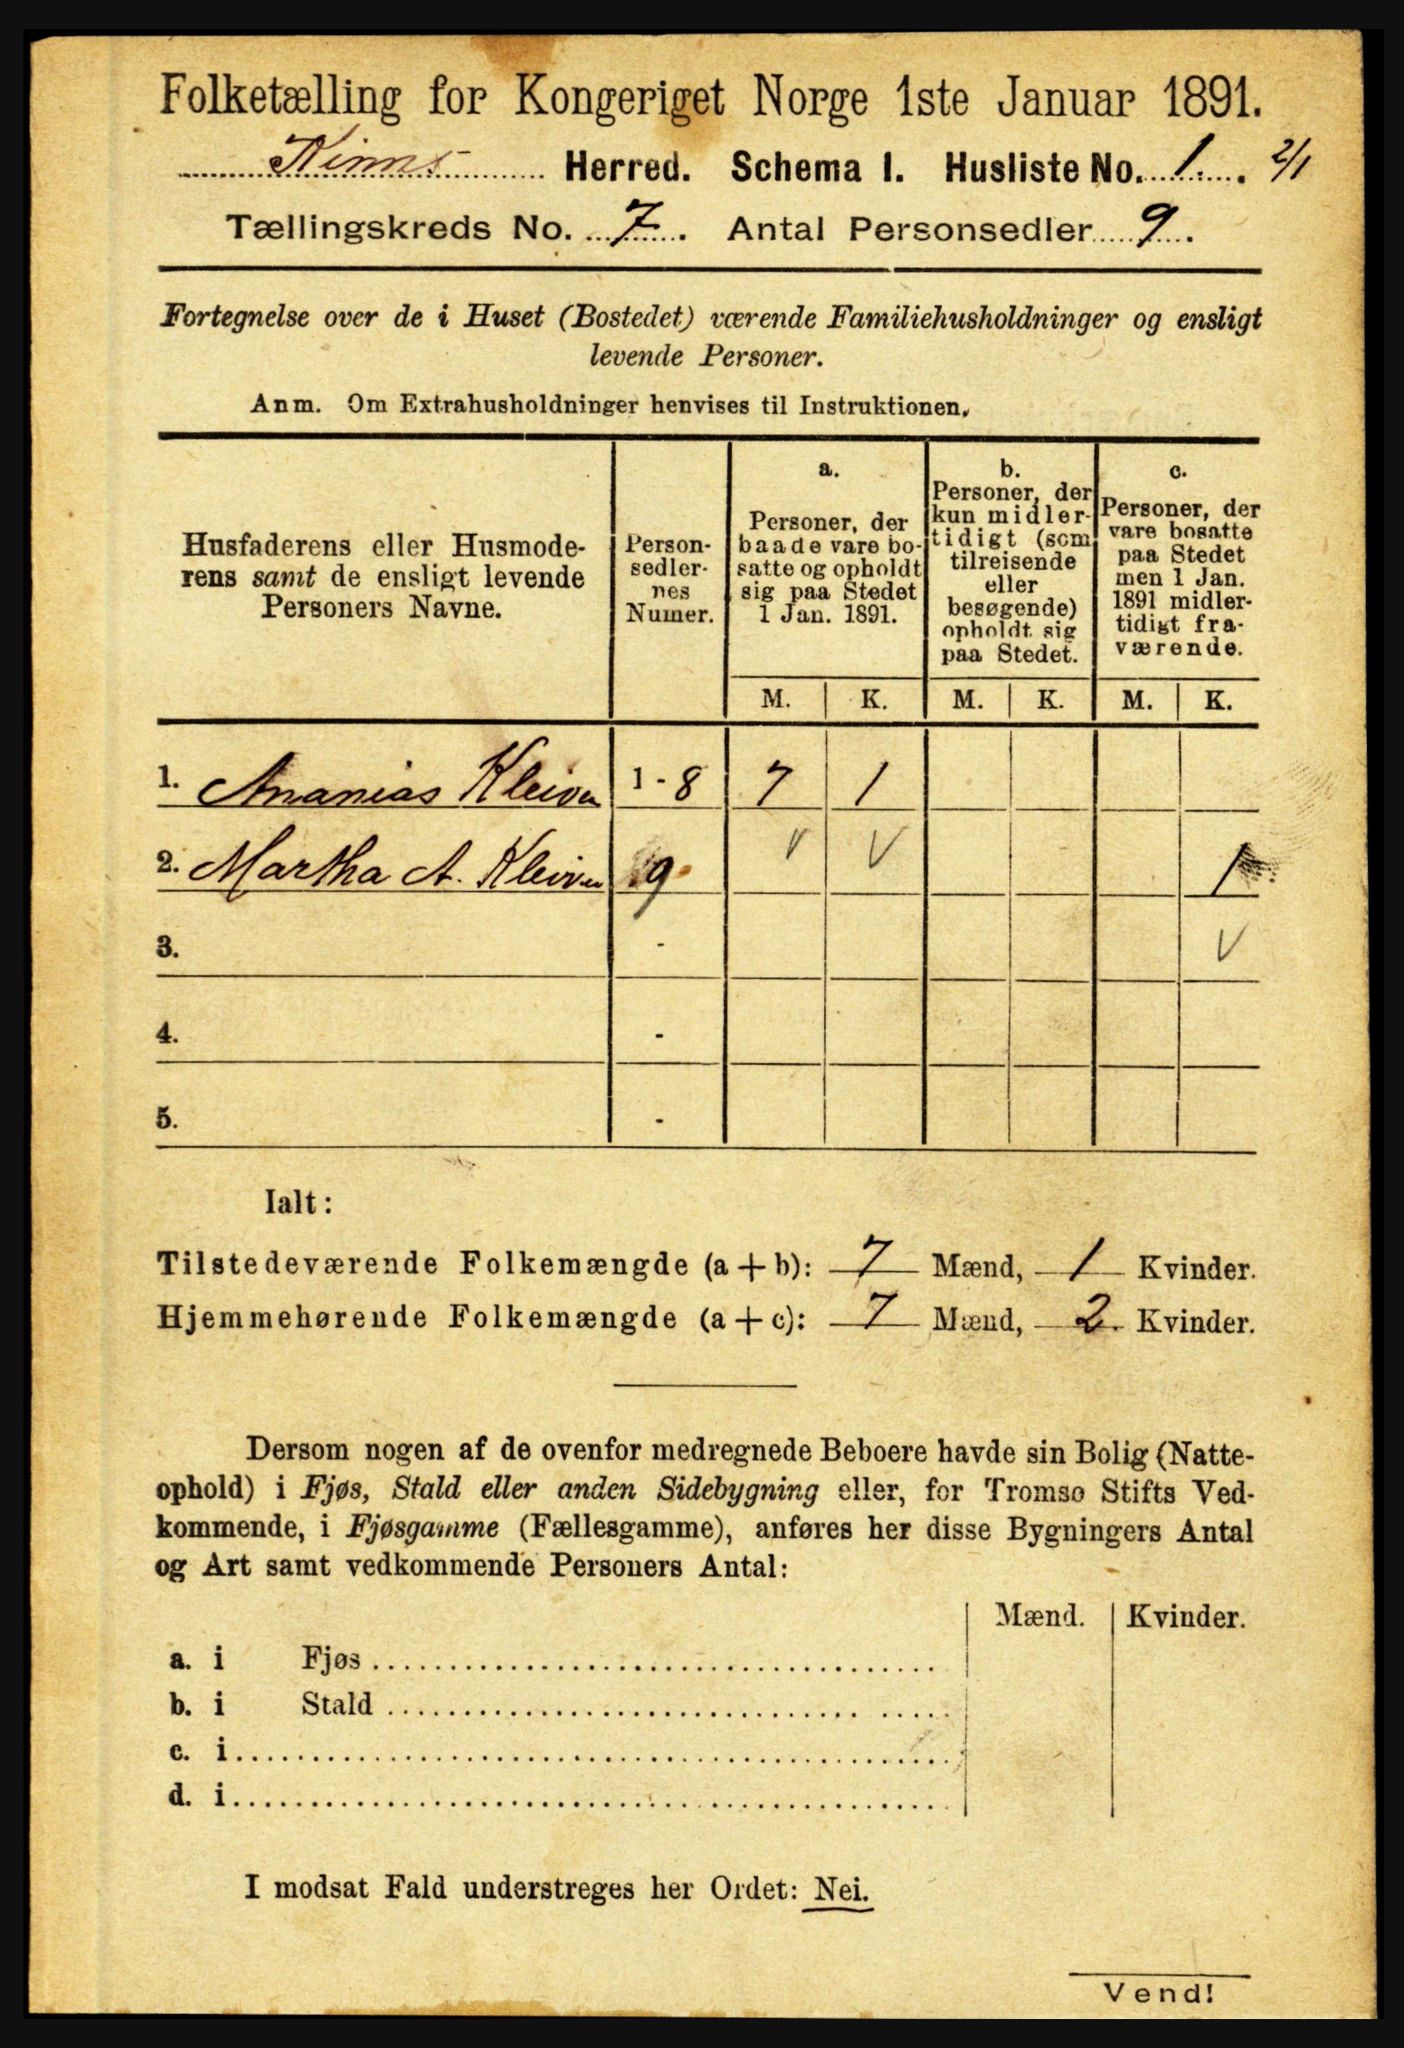 Folketælling for Kongeriget Norge 1ste Januar 1891.
Kinns Herred. Schema I. Husliste No. 1. 2/1
Tællingskreds No. 7. Antal Personsedler 9.
Fortegnelse over de i Huset (Bostedet) værende Familiehusholdninger og ensligt
levende Personer.
Anm. Om Extrahusholdninger henvises til Instruktionen.
Husfaderens eller Husmode-
rens samt de ensligt levende
Personers Navne.
Person-
sedler-
nes
Numer.
a.
Personer, der
baade vare bo-
satte og opholdt
sig paa Stedet
1 Jan. 1891.
b.
Personer, der
kun midler-
tidigt (som
tilreisende
eller
besøgende)
opholdt sig
paa Stedet.
c.
Personer, der
vare bosatte
paa Stedet
men 1 Jan.
1891 midler-
tidigt fra-
værende.
M. K. M. K. M. K.
1. Ananias Kleiven 1 - 8 7 1
2. Martha A. Kleiven 9 V V 1
3. - V
4. -
5. -
Ialt:
Tilstedeværende Folkemængde (a + b): 7 Mænd, 1 Kvinder.
Hjemmehørende Folkemængde (a + c): 7 Mænd, 2 Kvinder.
Dersom nogen af de ovenfor medregnede Beboere havde sin Bolig (Natte-
ophold) i Fjøs, Stald eller anden Sidebygning eller, for Tromsø Stifts Ved-
kommende, i Fjøsgamme (Fællesgamme), anføres her disse Bygningers Antal
og Art samt vedkommende Personers Antal:
Mænd. Kvinder.
a. i Fjøs
b. i Stald
c. i
d. i
I modsat Fald understreges her Ordet: Nei.
Vend!